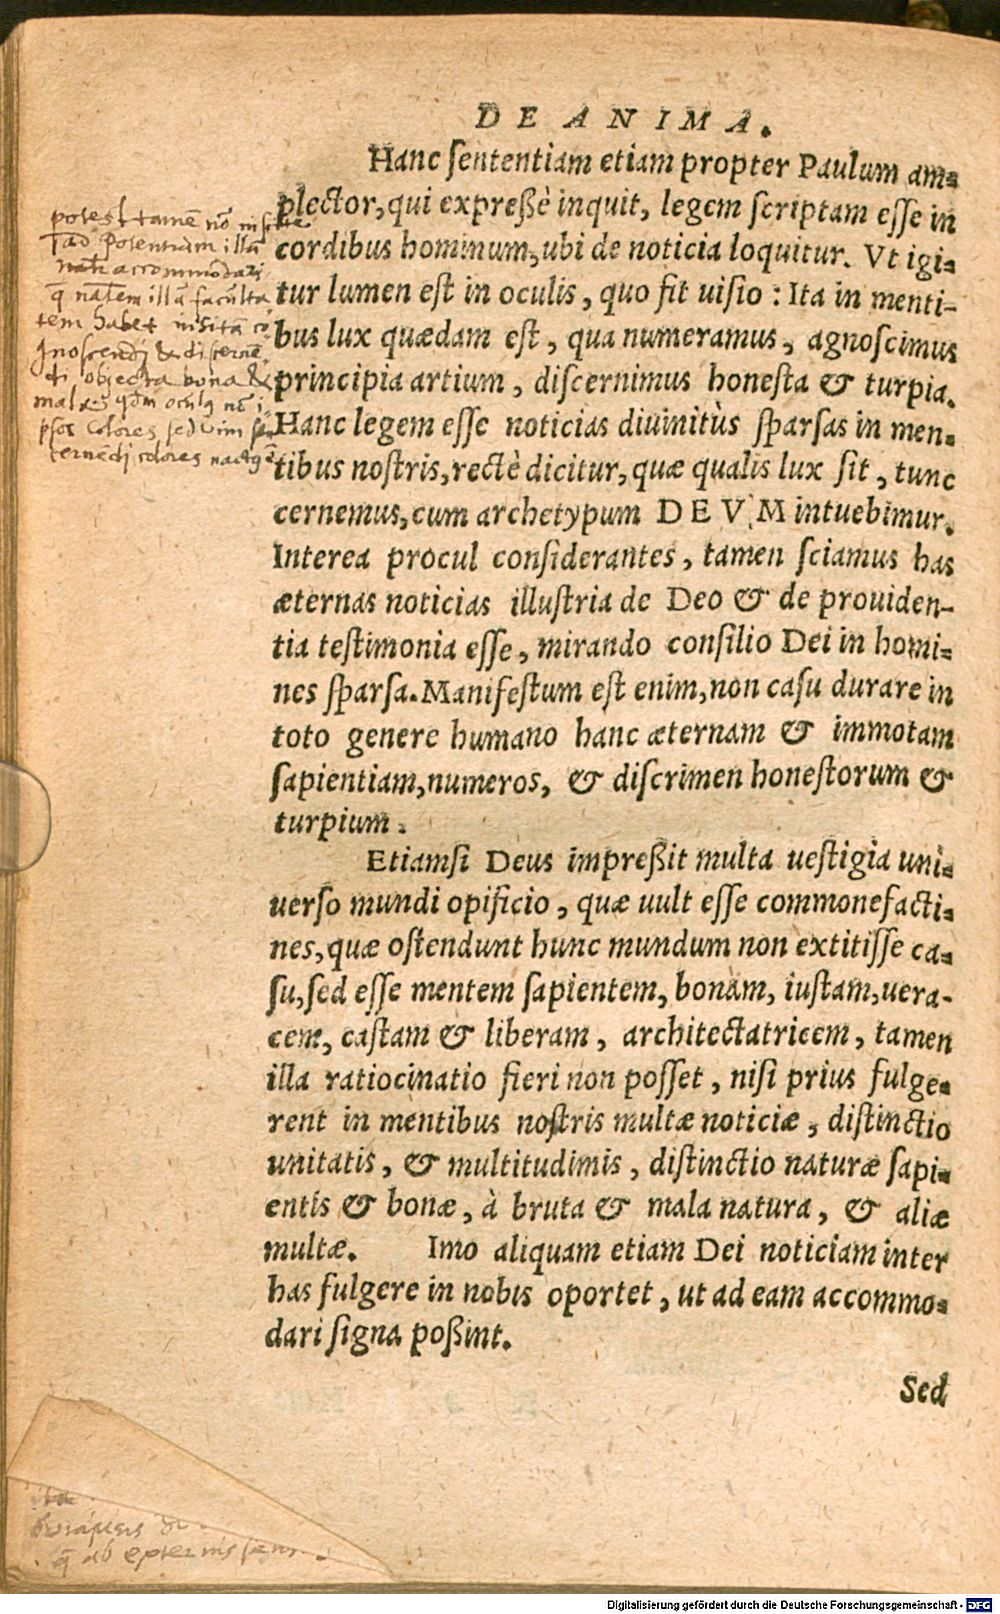 DE ANIMA.
Hanc sententiam etiam propter Paulum am=
plector, qui expreßè inquit, legem scriptam esse in
cordibus hominum, ubi de noticia loquitur. Vt igi=
tur lumen est in oculis, quo fit uisio : Ita in menti-
bus lux quædam est, qua numeramus, agnoscimus
principia artium, discernimus honesta & turpia.
Hanc legem esse noticias diuinitùs sparsas in men=
tibus nostris, rectè dicitur, quæ qualis lux sit, tunc
cernemus, cum archetypum DEVM intuebimur.
Interea procul considerantes, tamen sciamus has
æternas noticias illustria de Deo & de prouiden-
tia testimonia esse, mirando consilio Dei in homi=
nes sparsa. Manifestum est enim, non casu durare in
toto genere humano hanc æternam & immotam
sapientiam, numeros, & discrimen honestorum &
turpium.
Etiamsi Deus impreßit multa uestigia uni=
uerso mundi opificio, quæ uult esse commonefacti=
nes, quæ ostendunt hunc mundum non extitisse ca=
su, sed esse mentem sapientem, bonam, iustam, uera-
cem, castam & liberam, architectatricem, tamen
illa ratiocinatio fieri non posset, nisi prius fulge=
rent in mentibus nostris multæ noticiæ, distinctio
unitatis, & multitudimis, distinctio naturæ sapi=
entis & bonæ, à bruta & mala natura, & aliæ
multæ. Imo aliquam etiam Dei noticiam inter
has fulgere in nobis oportet, ut ad eam accommo=
dari signa poßint.
Sed
potest tamē nō
ad potentiam illā
accommodari
q̄ nālem illā faculta
tem habet insitā co
gnoscendj & discernē
di objecta bona &
mala nō i
psos colores sed uim
cernēdj colores
ab
Digitalisierung gefördert durch die Deutsche Forschungsgemeinschaft - DFG